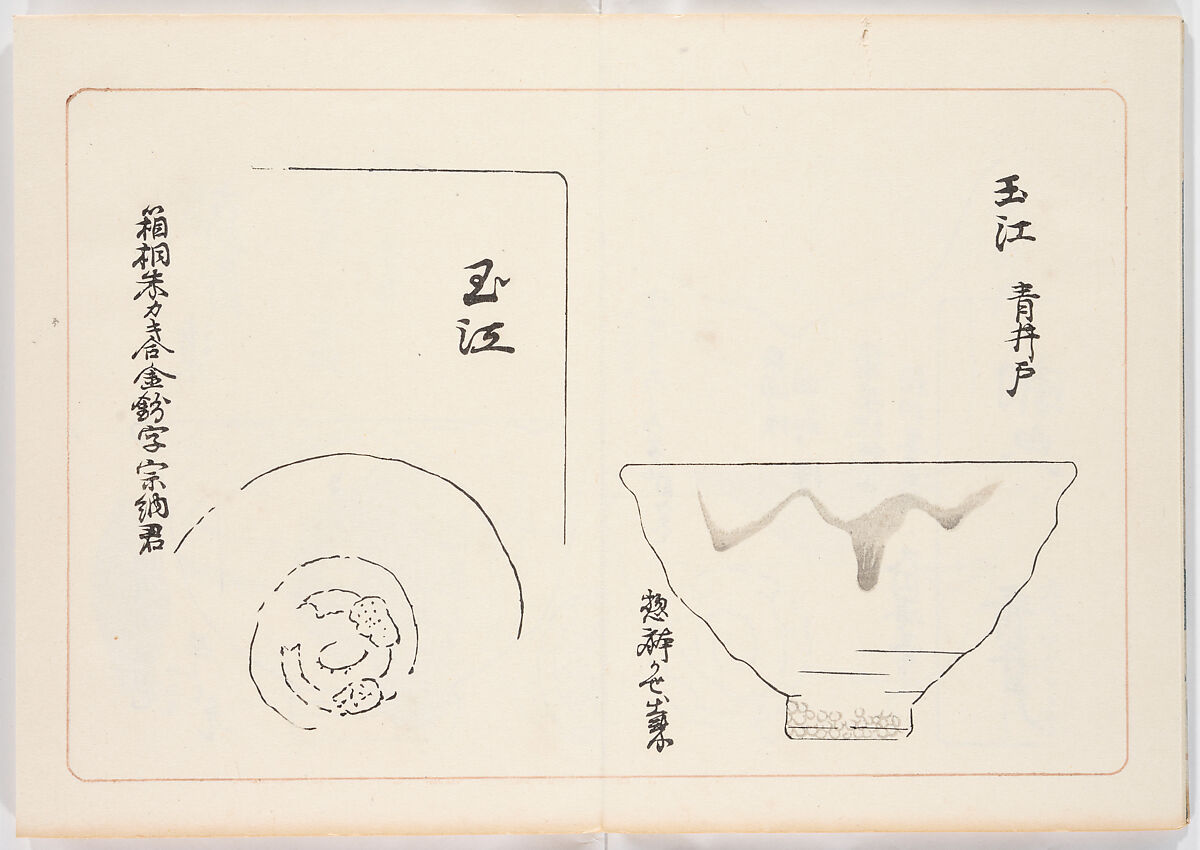 玉江 青井戸
惣躰かせ
玉江
箱桐朱カキ合金粉字宗納君